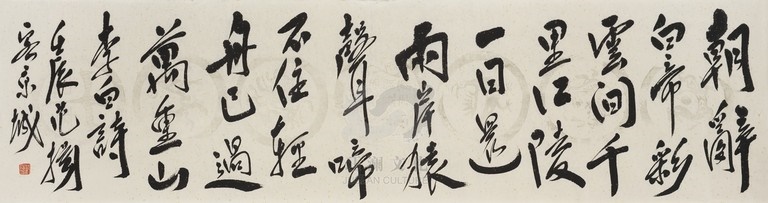 朝辭
白帝彩
雲間千
里江陵
一日還
兩岸猿
聲啼
不住輕
舟已過
萬重山
李白詩
壬辰范揚
客京城